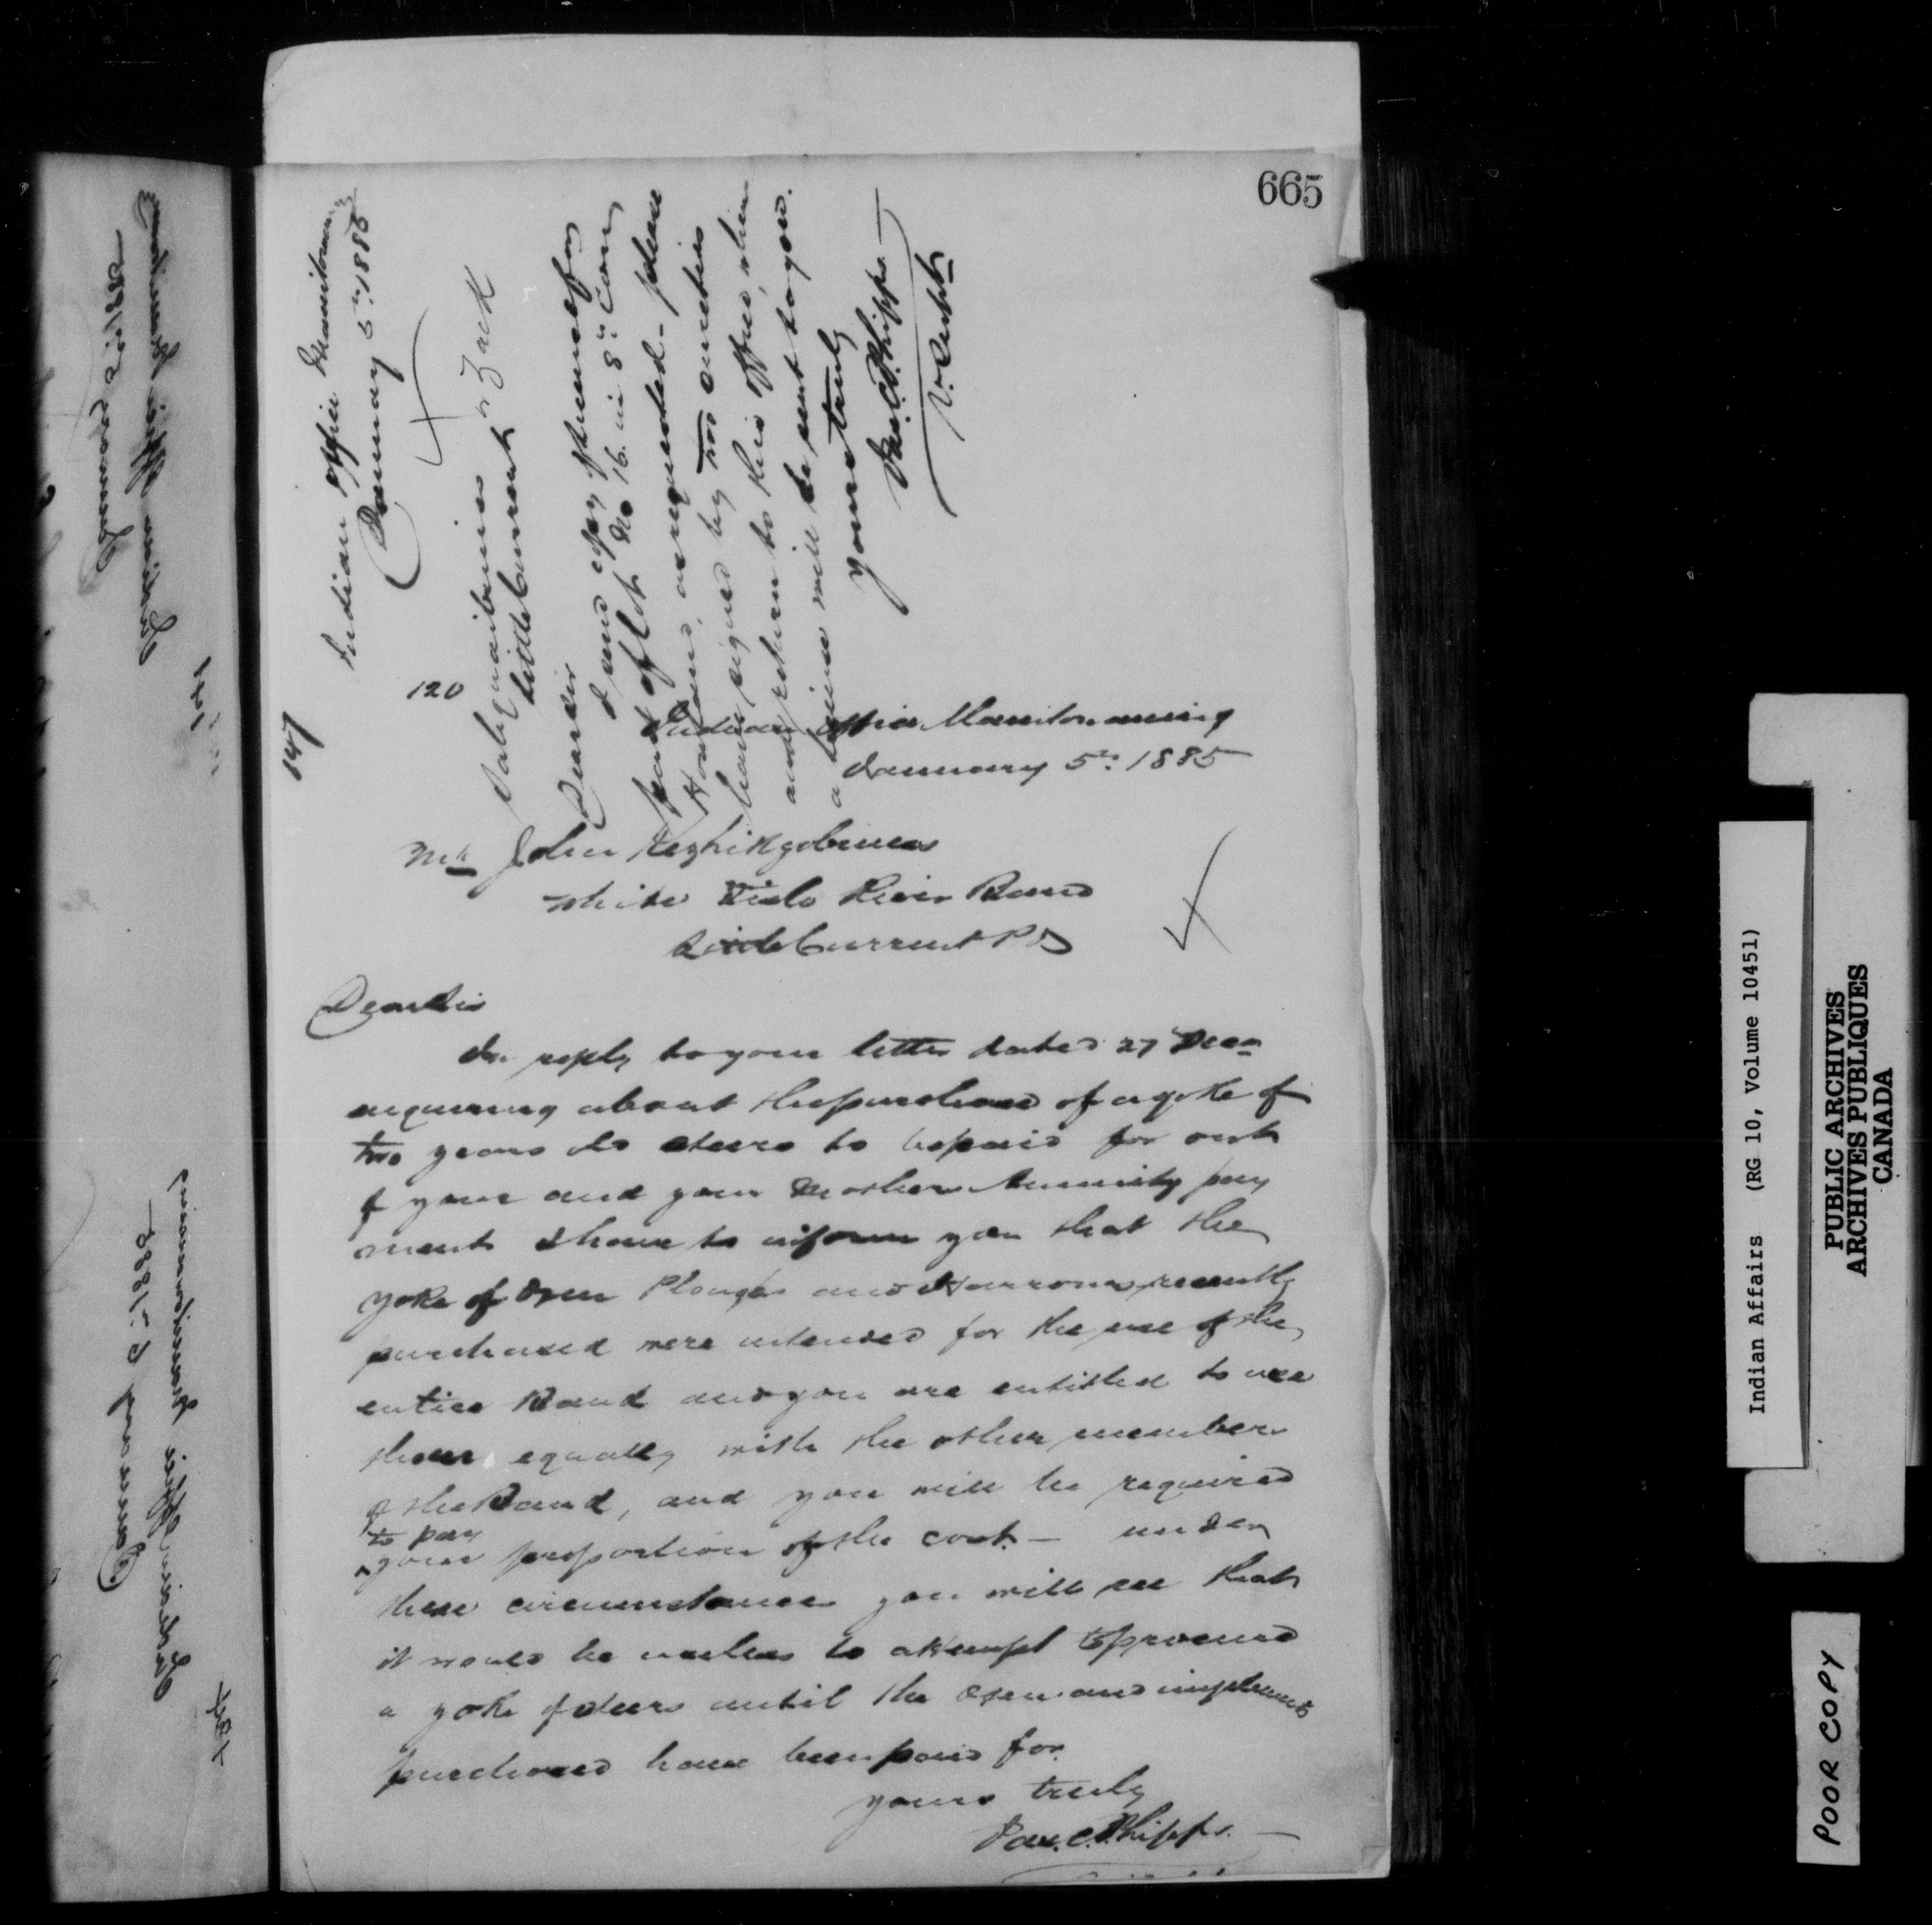 665
147
Indian Office Manitowaning
January 5th 1885
120
Little Current
Dear Sir
I send copy of licence for
part of Lot No 16. in 8th Con
Howland, as requested - please
have signed by two sureties
and return to this office, when
a license will be sent to you.
yours truly
Jas. C. Phipps.
V. Supt
Indian Office Manitowaning
January 5th 1885
Mr John
White Fish River Band
Little Current P O
Dear Sir
In reply to your letter dated 27 Decr
enquiring about the purchase of a yoke of
two years old steers to be paid for out
of your and your Mothers Annuity pay
ments I have to inform you that the
yoke of Oxen Plough and Harrows recently
purchased were intended for the use of the
entire Band and you are entitled to use
them equally with the other members
of the Band, and you will be required
to pay
your proportion of the cost. — under
these circumstances you will see that
it would be useless to attempt to procure
a yoke of steers until the Oxen and implements
purchased have been paid for.
yours truly
Jas. C. Phipps.
Indian Office Manitowaning
January 5th 1885
Indian Affairs (RG 10, Volume 10451)
PUBLIC ARCHIVES
ARCHIVES PUBLIQUES
CANADA
POOR COPY